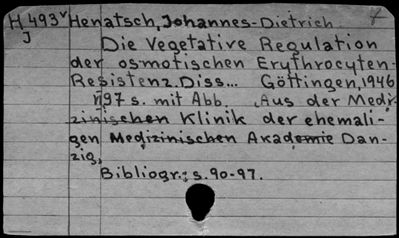 H 493v Henatsch, Johannes-Dietrich
J
Die Vegetative Regulation
der osmotischen Erythrocyten-
Resistenz. Diss... Göttingen, 1946
97 s. mit Abb. Aus der Medi-
zinischen Klinik der ehemali-
gen Medizinischen Akademie Dan-
zig.
Bibliogr.: s. 90-97.